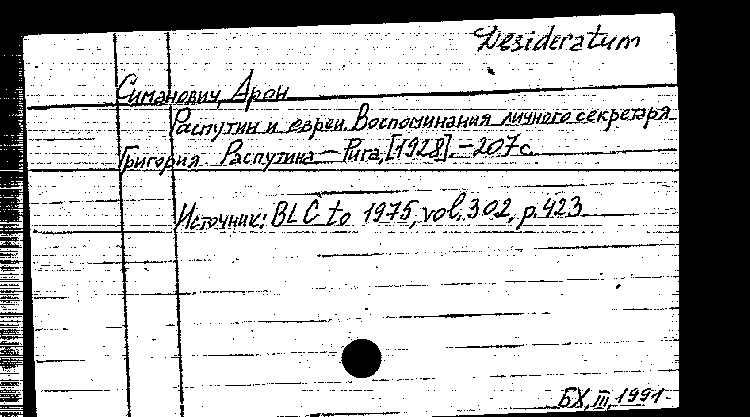 Desideratum
Симанович, Арон
Распутин и евреи. Воспоминания личного секретаря
Григория Распутина. – Рига, [1928]. – 207 с.
Источник: BLC to 1975, vol. 302, p. 423
БХ, III, 1991